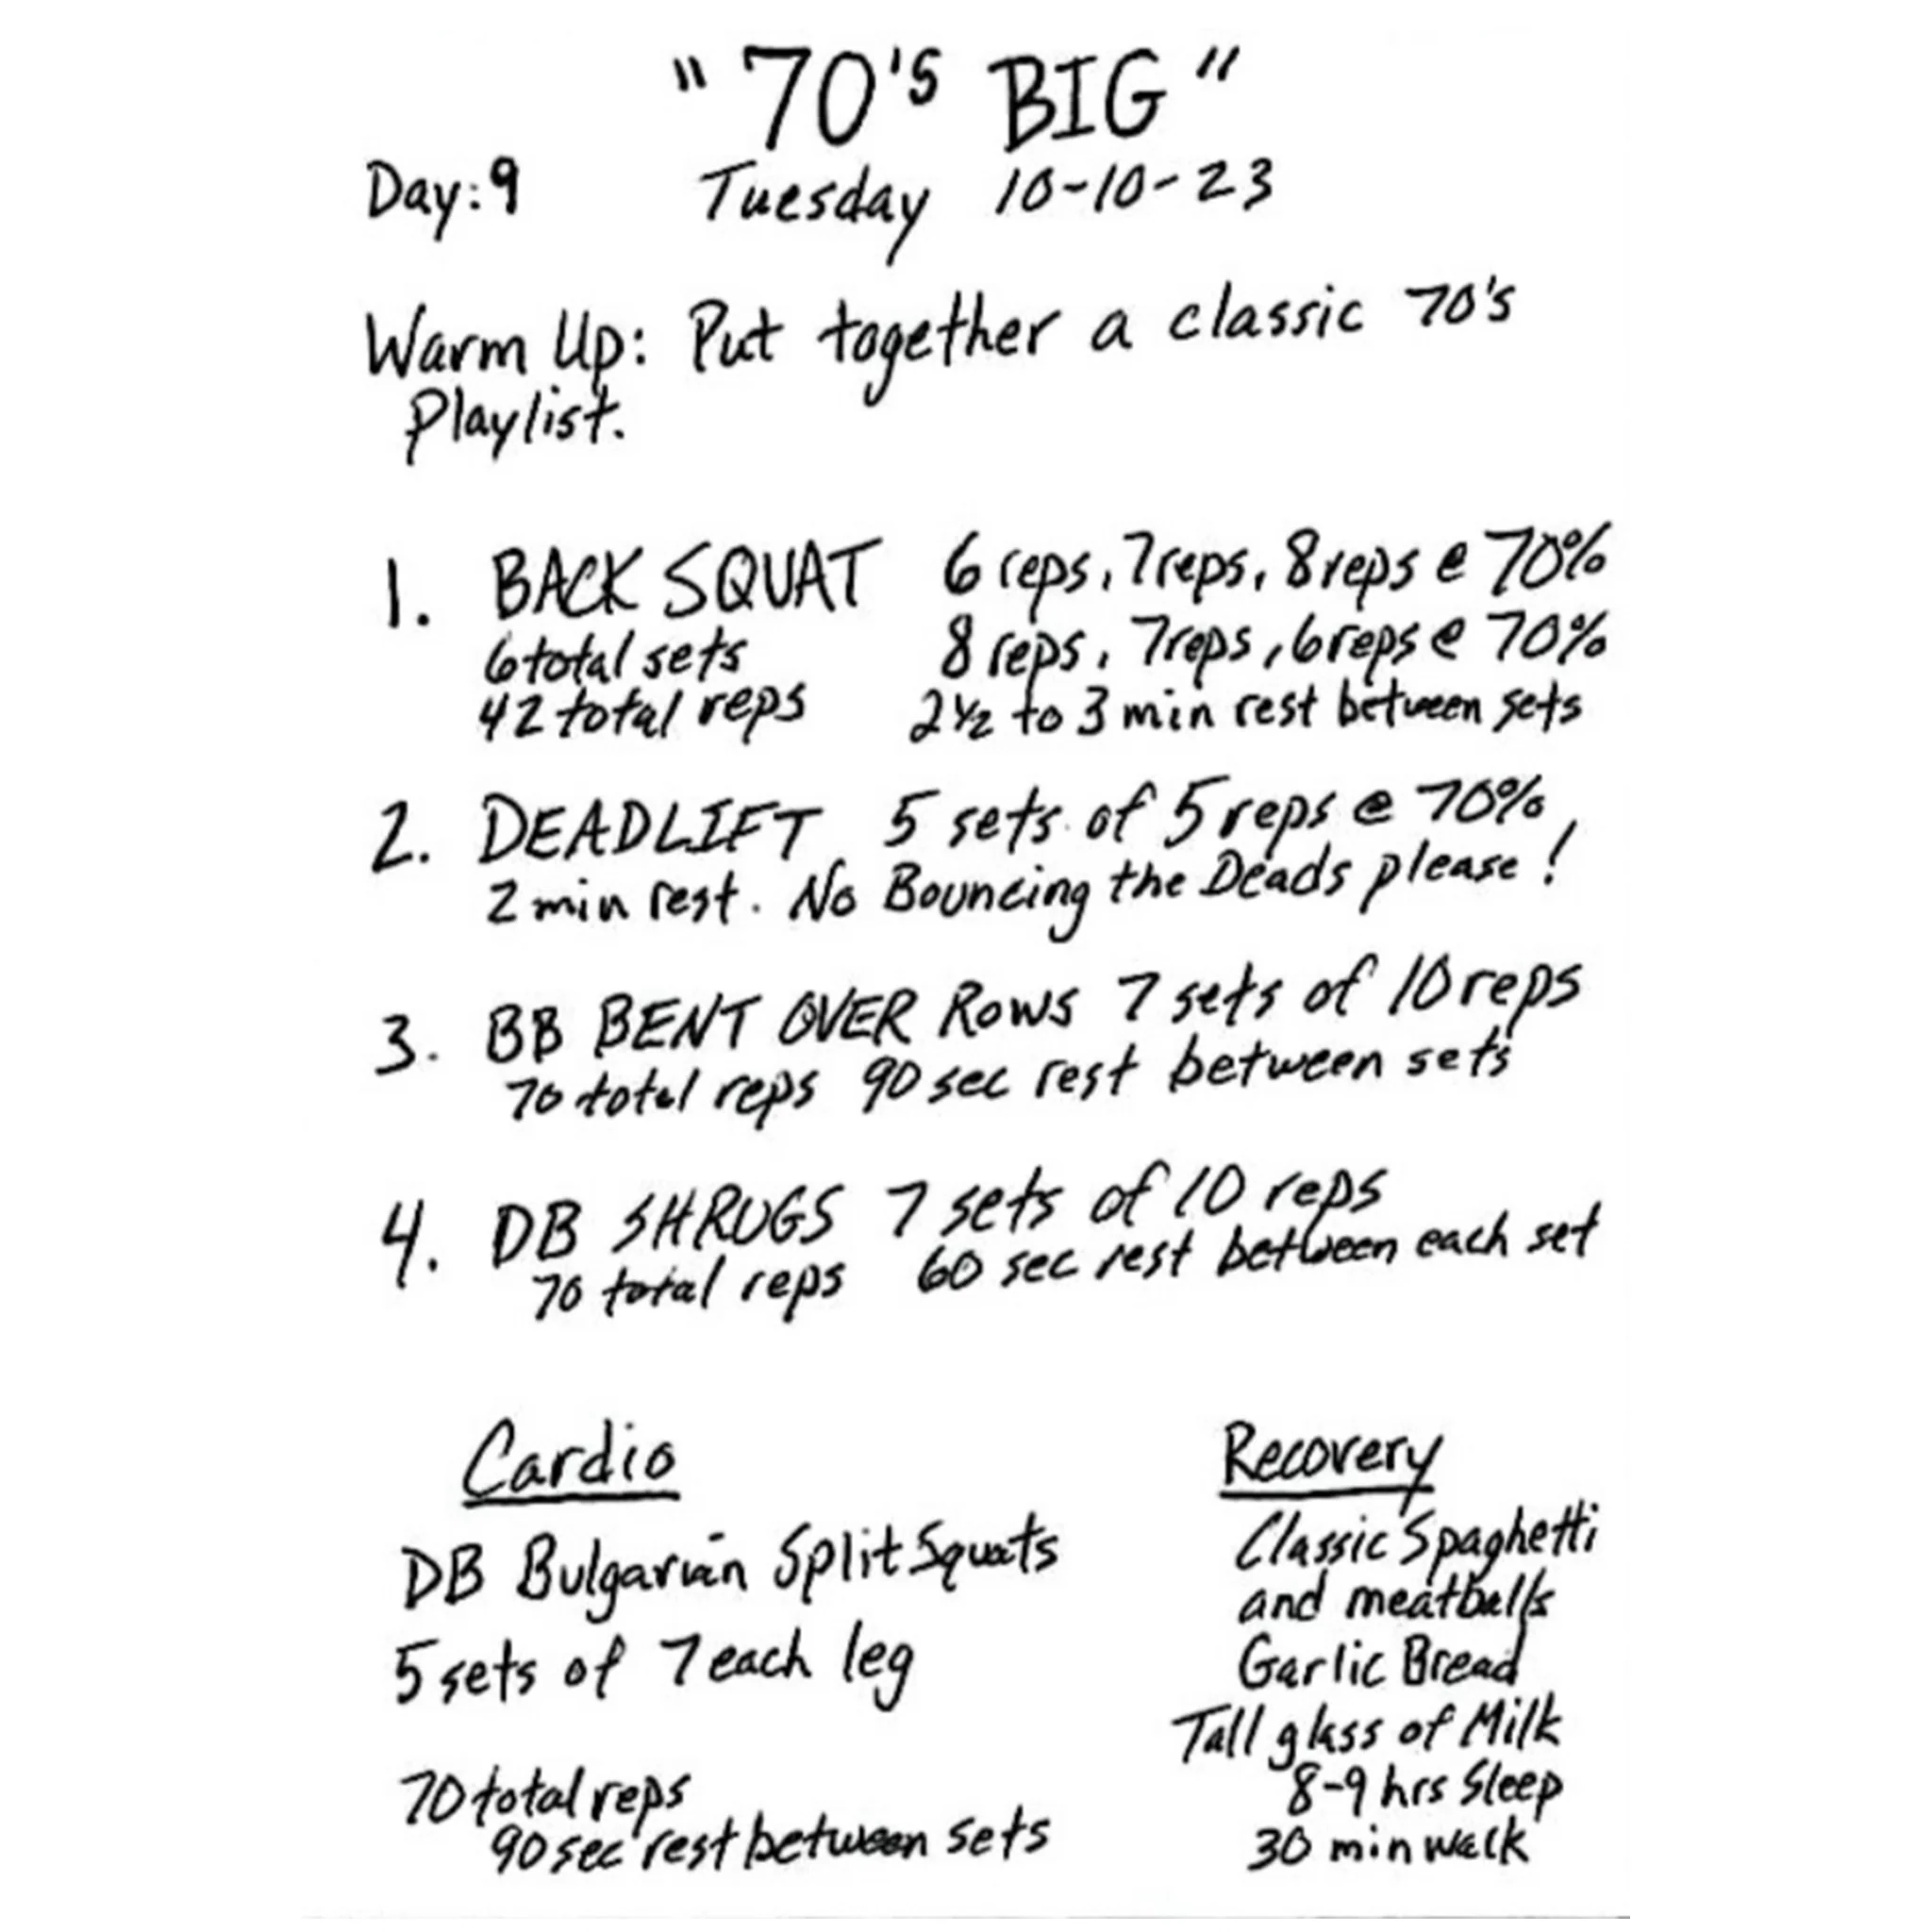 "70'S BIG"
Day: 9 Tuesday 10-10-23
Warm Up: Put together a classic 70's
Playlist.
1. BACK SQUAT 6 reps, 7 reps, 8 reps @ 70%
6 total sets 8 reps, 7 reps, 6 reps @ 70%
42 total reps 2 1/2 to 3 min rest between sets
2. DEADLIFT 5 sets of 5 reps @ 70%
2 min rest. No Bouncing the Deads please!
3. BB BENT OVER ROWS 7 sets of 10 reps
70 total reps 90 sec rest between sets
4. DB SHRUGS 7 sets of 10 reps
70 total reps 60 sec rest between each set
Cardio
DB Bulgarian Split Squats
5 sets of 7 each leg
70 total reps
90 sec rest between sets
Recovery
Classic Spaghetti
and meatballs
Garlic Bread
Tall glass of Milk
8-9 hrs Sleep
30 min walk